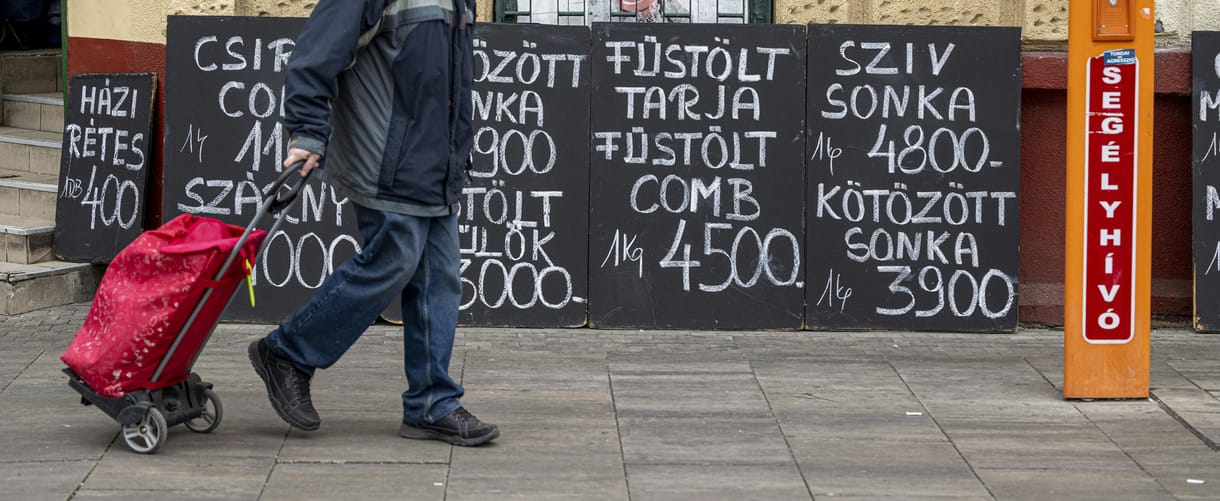 HÁZI
RÉTES
1DB 400
CSIR
CO
1kg 11
SZÁRNY
000
ÖZÖTT
SONKA
900
TÖLT
ÜLÖK
3000-
FÜSTÖLT
TARJA
FÜSTÖLT
COMB
1Kg 4500-
SZIV
SONKA
1kg 4800-
KÖTÖZÖTT
SONKA
1kg 3900
SEGÉLYHÍVÓ